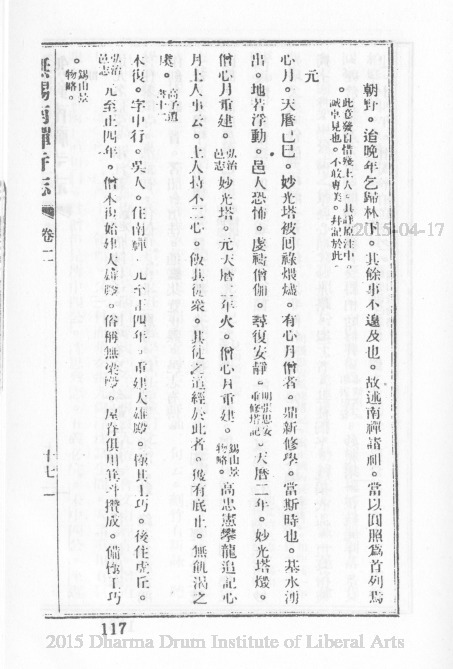 朝野。追晚年乞歸林下。其餘事不遑及也。故述南禪諸祖。當以圓照為首列焉
。此意發自惜殘上人。具詳原注中。
誠卓見也。不敢專美。并記於此。
元
心月。天曆己巳。妙光塔被回祿煨燼。有心月僧者。鼎新修學。當斯時也。基水湧
出。地若浮動。邑人恐怖。虔禱僧伽。尋復安靜。明張思安重修塔記。天曆二年。妙光塔燬。
僧心月重建。弘治邑志 妙光塔。元天曆二年火。僧心月重建。錫山景物略。高忠憲攀龍追記心
月上人事云。上人持不二心。飯其徒衆。其徒之追經於此者。後有底止。無飢渴之
虞。高子遺書十二
木復。字中行。吳人。住南禪。元至正四年。重建大雄殿。極其工巧。後住虎丘。
弘治邑志 元至正四年。僧木復始建大雄殿。俗稱無梁殿。屋脊俱用箕斗攢成。備極工巧
。錫山景物略。
無錫南禪寺志 卷二 十七
117
2015-04-17
2015 Dharma Drum Institute of Liberal Arts